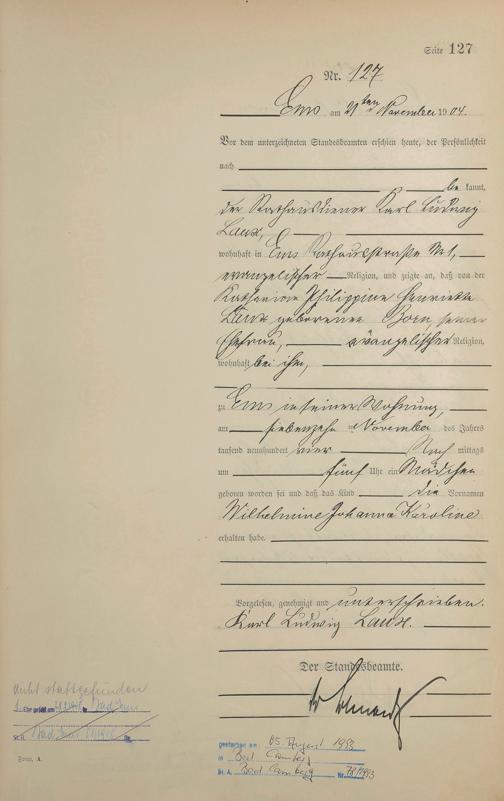 Seite 127
Nr. 127
Ems am 21ten November 1904.
Vor dem unterzeichneten Standesbeamten erschien heute, der Persönlichkeit
nach
be kannt,
der Rathausdiener Karl Ludwig
Laux,
wohnhaft in Ems Rathausstraße No 1,
evangelischer Religion, und zeigte an, daß von der
Katharine Philippine Henriette
Laux geborenen Born, seiner
Ehefrau, evangelischer Religion,
wohnhaft bei ihm,
zu Ems in seiner Wohnung,
am siebenzehn ten November des Jahres
tausend neunhundert vier Nach mittags
um fünf Uhr ein Mädchen
geboren worden sei und daß das Kind die Vornamen
Wilhelmine Johanna Karoline
erhalten habe.
Vorgelesen, genehmigt und unterschrieben.
Karl Ludwig Laux.
Der Standesbeamte.
nicht stattgefunden
1. Ehe geschl. am in Bad Ems
St. A. Bad Ems
Form. A.
gestorben am: 05. August 1993
in Bad Camberg
St. A. Bad Camberg Nr. 78/1993